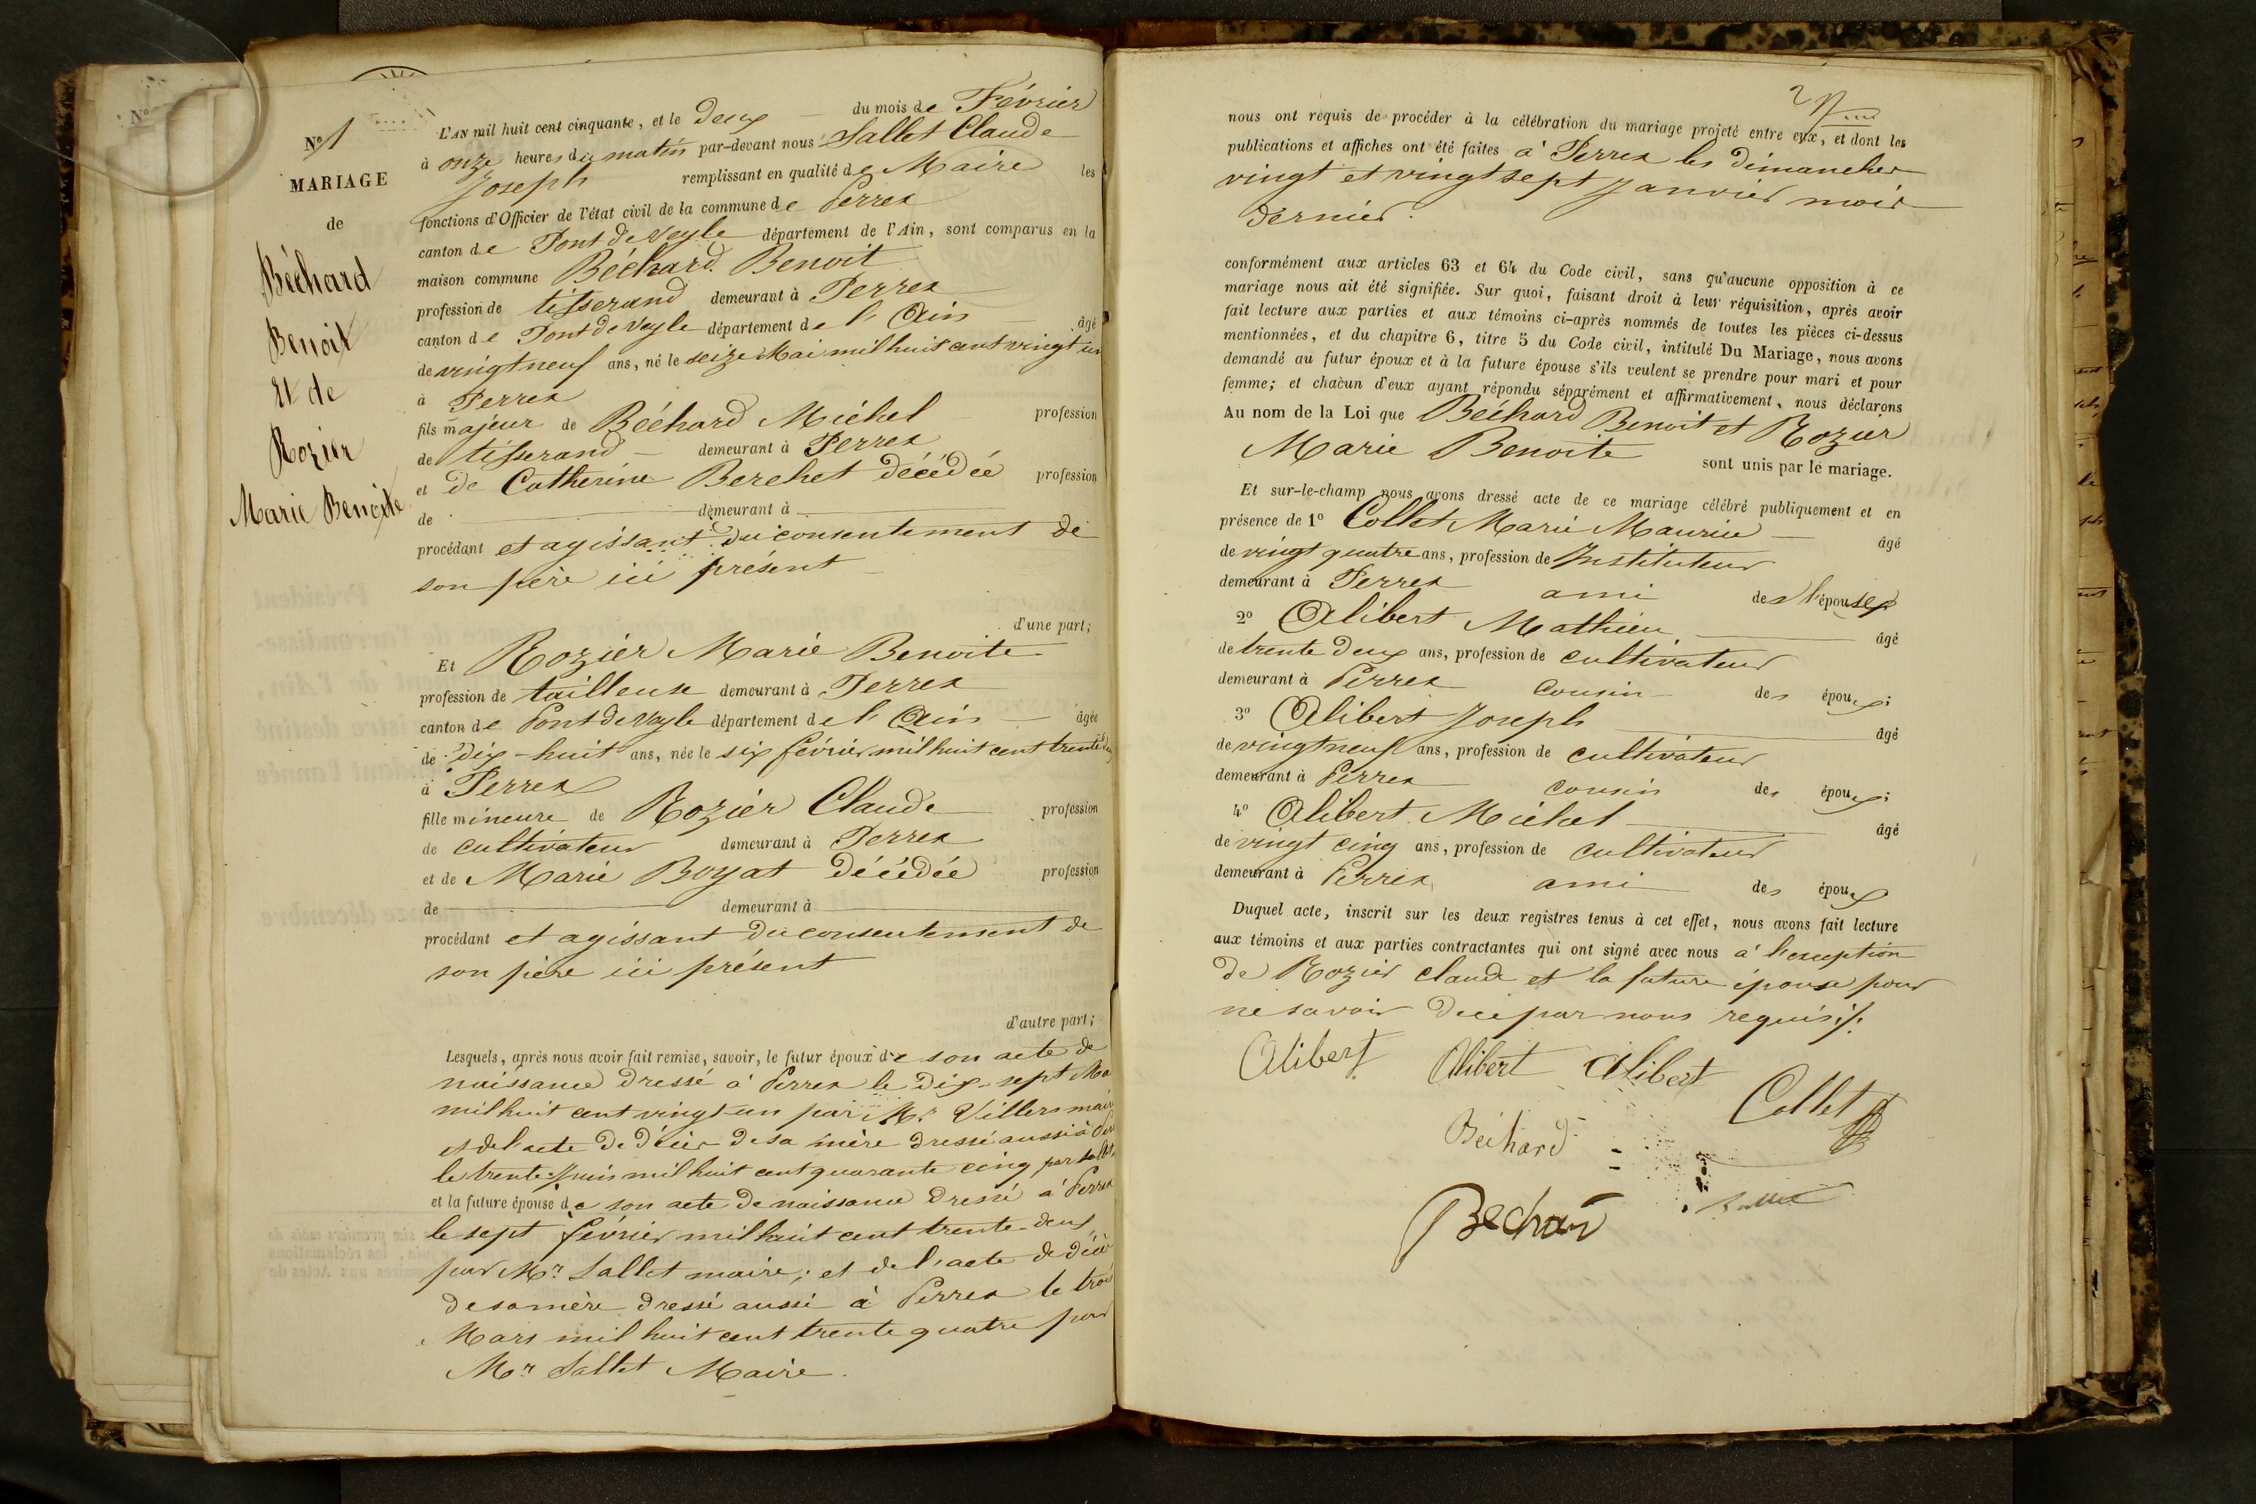 Nº 1
MARIAGE
de
Béchard
Benoit
Et de
Rozier
Marie Benoite
L'AN mil huit cent cinquante, et le deux du mois de Février
à onze heures du matin par-devant nous Sallet Claude
Joseph remplissant en qualité de Maire les
fonctions d'Officier de l'état civil de la commune de Perrex
canton de Pont de Veyle département de l'Ain, sont comparus en la
maison commune Béchard Benoit
profession de tisserand demeurant à Perrex
canton de Pont de Veyle département de l'Ain âgé
de vingt neuf ans, né le seize Mai mil huit cent vingt un
à Perrex
fils majeur de Béchard Michel profession
de tisserand demeurant à Perrex
et de Catherine Berchet décédée profession
de demeurant à
procédant et agissant du consentement de
son père ici présent
d'une part;
Et Rozier Marie Benoite
profession de tailleuse demeurant à Perrex
canton de Pont de Veyle département de l'Ain âgée
de dix-huit ans, née le six février mil huit cent trente deux
à Perrex
fille mineure de Rozier Claude profession
de cultivateur demeurant à Perrex
et de Marie Boyat décédée profession
de demeurant à
procédant et agissant du consentement de
son père ici présent
d'autre part;
Lesquels, après nous avoir fait remise, savoir, le futur époux de son acte de
naissance dressé à Perrex le dix-sept Mai
mil huit cent vingt un par Mr. Villers maire
et de l'acte de décès de sa mère dressé aussi à
le trente Juin mil huit cent quarante cinq par Sallet
et la future épouse de son acte de naissance dressé à Perrex
le sept février mil huit cent trente-deux
par Mr. Sallet maire; et de l'acte de décès
de sa mère dressé aussi à Perrex le trois
Mars mil huit cent trente quatre par
Mr. Sallet Maire.
2
nous ont requis de procéder à la célébration du mariage projeté entre eux, et dont les
publications et affiches ont été faites à Perrex les dimanches
vingt et vingt sept Janvier mois
dernier.
conformément aux articles 63 et 64 du Code civil, sans qu'aucune opposition à ce
mariage nous ait été signifiée. Sur quoi, faisant droit à leur réquisition, après avoir
fait lecture aux parties et aux témoins ci-après nommés de toutes les pièces ci-dessus
mentionnées, et du chapitre 6, titre 5 du Code civil, intitulé Du Mariage, nous avons
demandé au futur époux et à la future épouse s'ils veulent se prendre pour mari et pour
femme; et chacun d'eux ayant répondu séparément et affirmativement, nous déclarons
Au nom de la Loi que Béchard Benoit et Rozier
Marie Benoite sont unis par le mariage.
Et sur-le-champ nous avons dressé acte de ce mariage célébré publiquement et en
présence de 1º Collet Marie Maurice âgé
de vingt quatre ans, profession de Instituteur
demeurant à Perrex ami des épouses
2º Alibert Mathieu âgé
de trente deux ans, profession de cultivateur
demeurant à Perrex cousin des époux;
3º Alibert Joseph âgé
de vingt neuf ans, profession de cultivateur
demeurant à Perrex cousin des époux;
4º Alibert Michel âgé
de vingt cinq ans, profession de cultivateur
demeurant à Perrex ami des époux
Duquel acte, inscrit sur les deux registres tenus à cet effet, nous avons fait lecture
aux témoins et aux parties contractantes qui ont signé avec nous à l'exception
de Rozier Claude et la future épouse pour
ne savoir de ce par nous requis ./.
Alibert Alibert Alibert Collet
Béchard
Sallet
Bechard